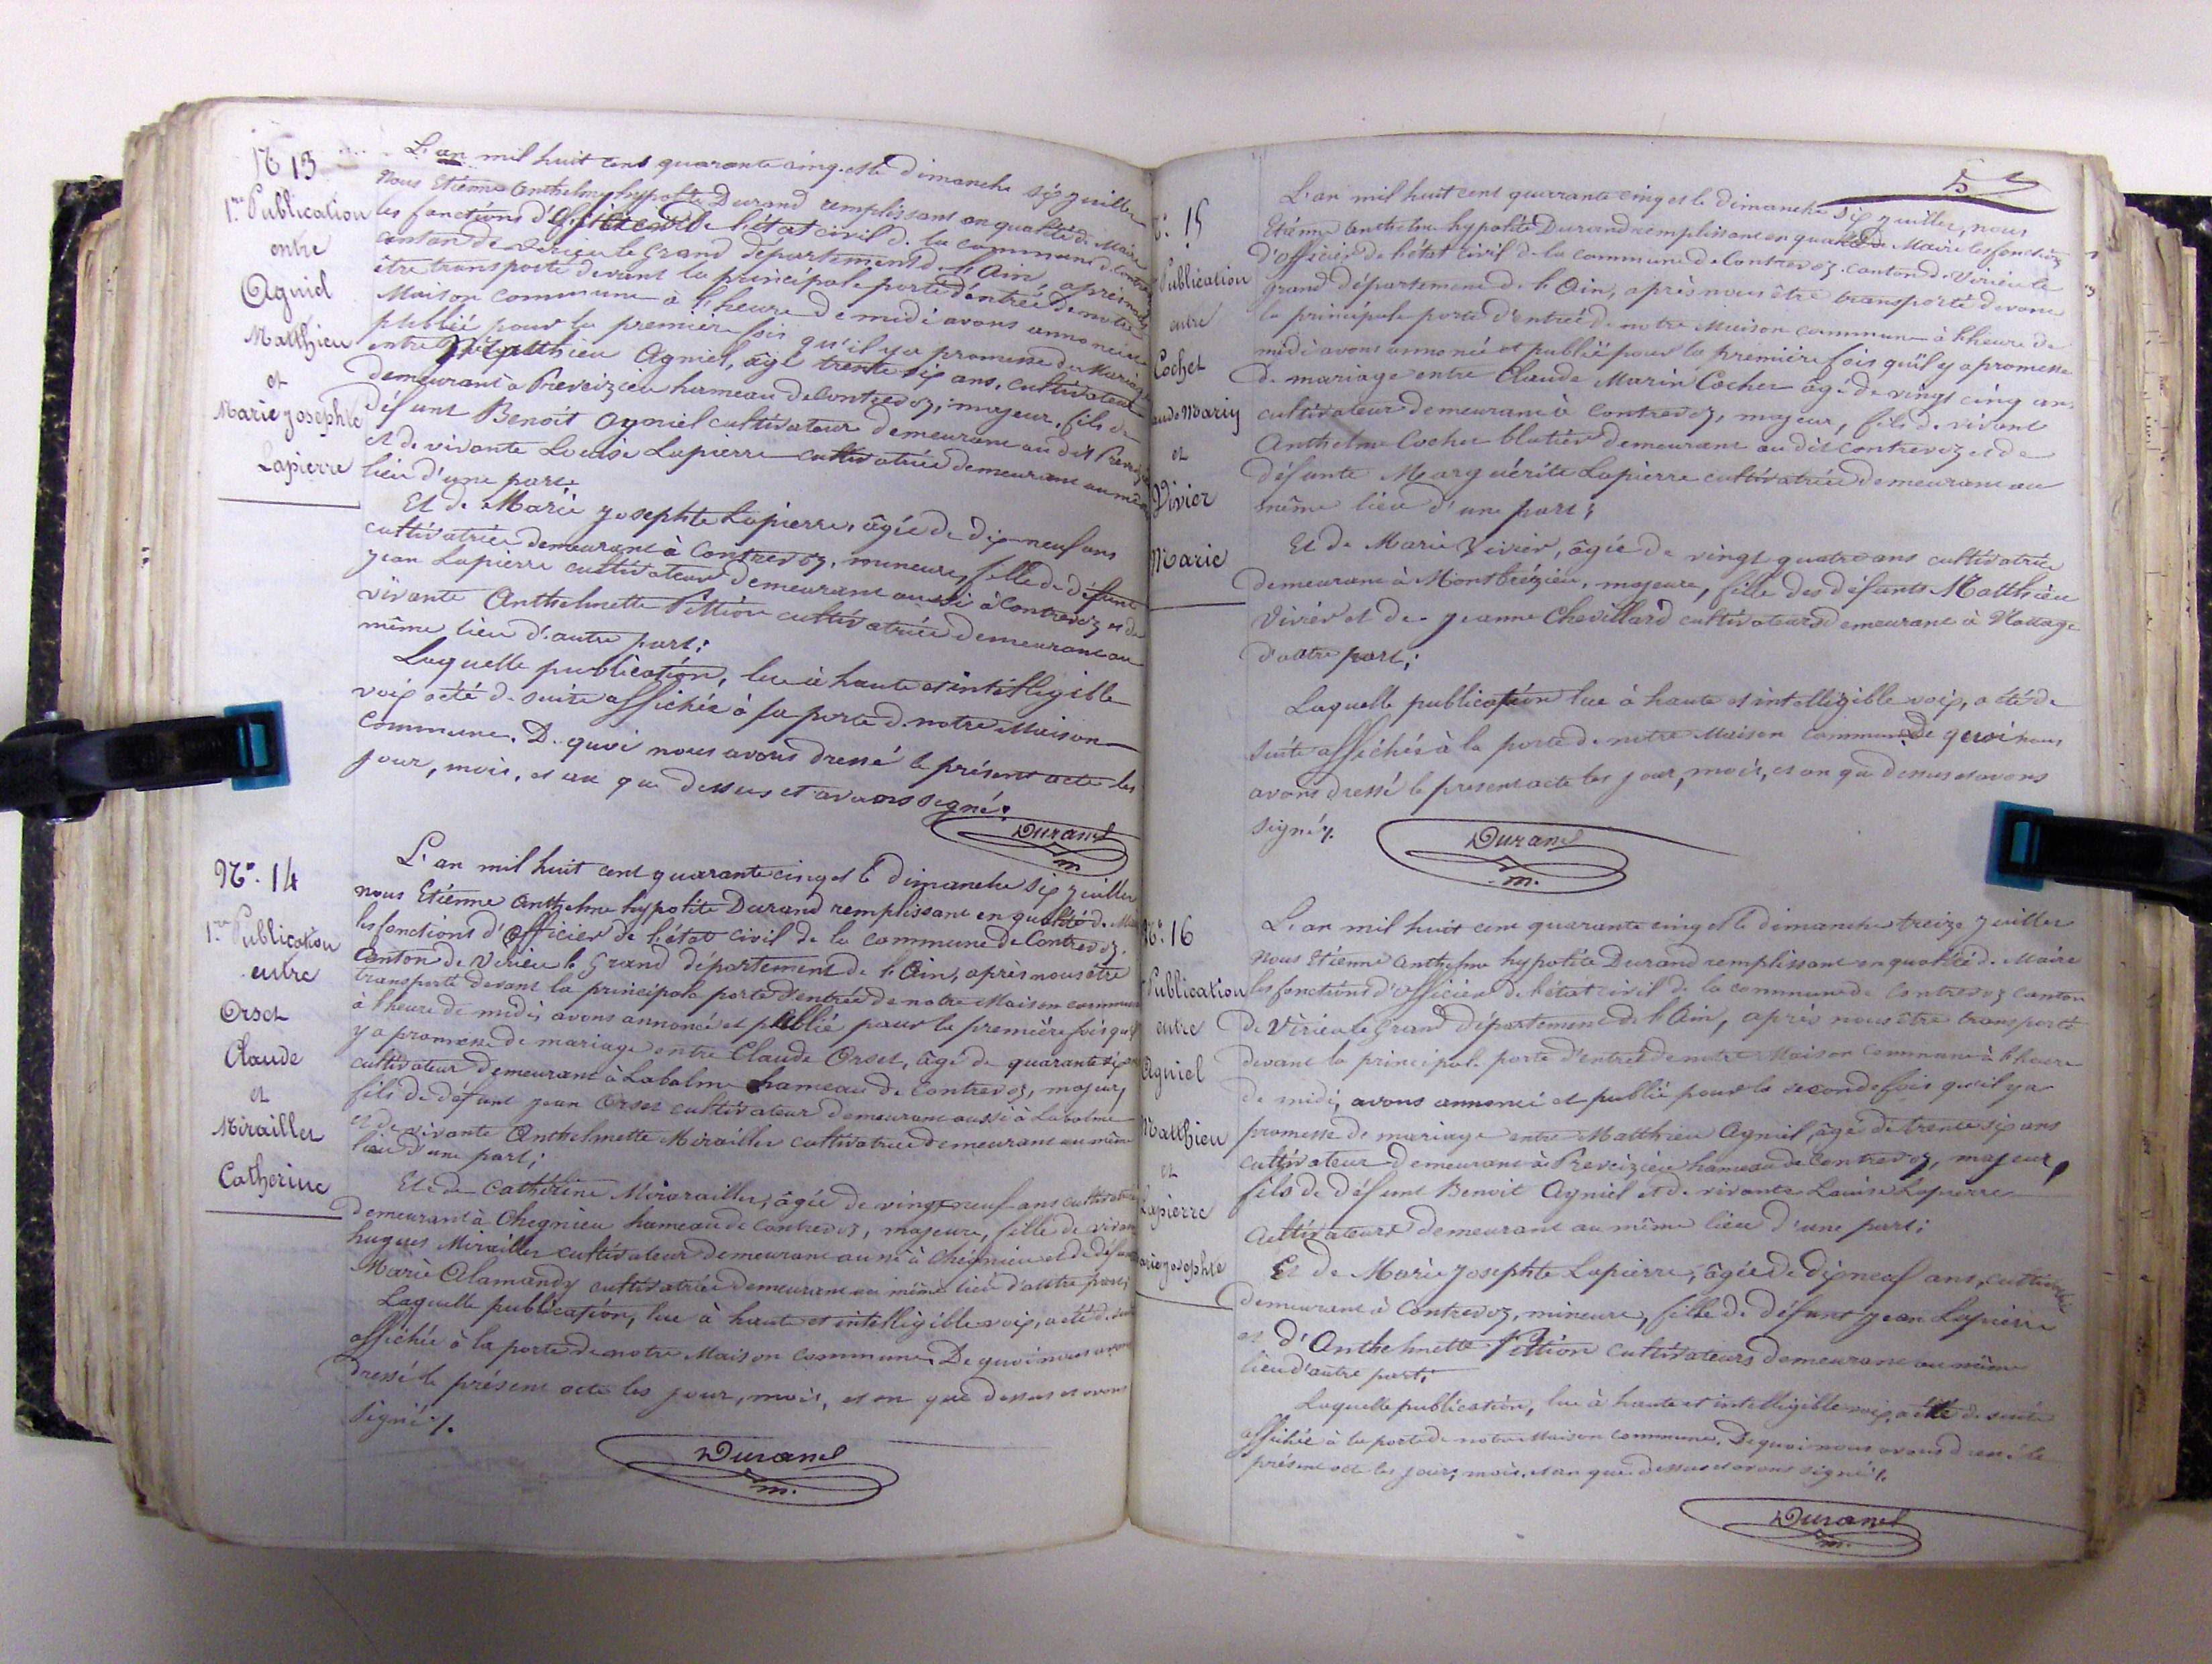 N° 13
1.re Publication
entre
Agniel
Matthieu
et
Marie Josephte
Lapierre
L'an mil huit cent quarante cinq et le dimanche six juillet
nous Etienne Anthelme hypolite Durand remplissant en qualité de Maire
les fonctions d'Officier de l'état civil de la commune de Contrevoz
canton de Virieu le Grand département de l'Ain, après nous
être transporté devant la principale porte d'entrée de notre
Maison commune à l'heure de midi avons annoncé et
publié pour la première fois qu'il y a promesse de Mariage
entre Matthieu Agniel, âgé trente six ans, cultivateur
demeurant à Preveizieu hameau de Contrevoz, majeur, fils de
défunt Benoit Agniel cultivateur demeurant au dit Preveizieu
et de vivante Louise Lapierre cultivatrice demeurant au même
lieu d'une part.
Et de Marie Josephte Lapierre, âgée de dix neuf ans
cultivatrice demeurant à Contrevoz, mineure, fille de défunt
Jean Lapierre cultivateur demeurant aussi à Contrevoz et de
vivante Anthelmette Pittion cultivatrice demeurant au
même lieu d'autre part;
Laquelle publication, lue à haute et intelligible
voix a été de suite affichée à la porte de notre Maison
commune. De quoi nous avons dressé le présent acte les
jour, mois, et an que dessus et avons signé.
Durand
m.
N°. 14
1.re Publication
entre
Orset
Claude
et
Miraillet
Catherine
L'an mil huit cent quarante cinq et le dimanche six juillet
nous Etienne Anthelme hypolite Durand remplissant en qualité de Maire
les fonctions d'Officier de l'état civil de la commune de Contrevoz
Canton de Virieu le Grand département de l'Ain, après nous être
transporté devant la principale porte d'entrée de notre Maison commune
à l'heure de midi, avons annoncé et publié pour la première fois qu'il
y a promesse de mariage entre Claude Orset, âgé de quarante six ans
cultivateur demeurant à Labalme hameau de Contrevoz, majeur,
fils de défunt Jean Orset cultivateur demeurant aussi à Labalme
et de vivante Anthelmette Miraillet cultivatrice demeurant au même
lieu d'une part;
Et de Catherine Mirarailler, âgée de vingt neuf ans cultivatrice
demeurant à Chegnieu hameau de Contrevoz, majeure, fille de vivant
hugues Miraillet cultivateur demeurant aussi à Chegnieu et de défunte
Marie Alamandy cultivatrice demeurant au même lieu d'autre part;
Laquelle publication, lue à haute et intelligible voix, a été de suite
affichée à la porte de notre Maison commune. De quoi nous avons
dressé le présent acte les jour, mois, et an que dessus et avons
signé /.
Durand
m.
5
N°. 15
Publication
entre
Cochet
Marin
et
Vivier
Marie
L'an mil huit cent quarante cinq et le dimanche six juillet, nous
Etienne Anthelme hypolite Durand remplissant en qualité de Maire les fonctions
d'officier de l'état civil de la commune de Contrevoz canton de Virieu le
Grand département de l'Ain, après nous être transporté devant
la principale porte d'entrée de notre Maison commune à l'heure de
midi avons annoncé et publié pour la première fois qu'il y a promesse
de mariage entre Claude Marin Cochet âgé de vingt cinq ans
cultivateur demeurant à Contrevoz, majeur, fils de vivant
Anthelme Cochet blatier demeurant au dit Contrevoz et de
défunte Marguérite Lapierre cultivatrice demeurant au
même lieu d'une part;
Et de Marie Vivier, âgée de vingt quatre ans cultivatrice
demeurant à Montbrézieu, majeure, fille des défunts Matthieu
Vivier et de Jeanne Chevillard cultivateurs demeurant à Nattage
d'autre part;
Laquelle publication lue à haute et intelligible voix, a été de
suite affichée à la porte de notre Maison commune. De quoi nous
avons dressé le présent acte les jour, mois, et an que dessus et avons
signé /.
Durand
m.
N°. 16
Publication
entre
Agniel
Matthieu
et
Lapierre
Marie Josephte
L'an mil huit cent quarante cinq et le dimanche treize juillet
nous Etienne Anthelme hypolite Durand remplissant en qualité de Maire
les fonctions d'Officier de l'état civil de la commune de Contrevoz canton
de Virieu le Grand département de l'Ain, après nous être transporté
devant la principale porte d'entrée de notre Maison commune à l'heure
de midi, avons annoncé et publié pour la seconde fois qu'il y a
promesse de mariage entre Matthieu Agniel, âgé de trente six ans
cultivateur demeurant à Preveizieu hameau de Contrevoz, majeur,
fils de défunt Benoit Agniel et de vivante Louise Lapierre
cultivateurs demeurant au même lieu d'une part;
Et de Marie Josephte Lapierre, âgée de dix neuf ans, cultivatrice
demeurant à Contrevoz, mineure, fille de défunt Jean Lapierre
et d'Anthelmette Pittion cultivateurs demeurant au même
lieu d'autre part;
Laquelle publication, lue à haute et intelligible voix, a été de suite
affichée à la porte de notre Maison commune. De quoi nous avons dressé le
présent acte les jour, mois, et an que dessus et avons signé /.
Durand
m.